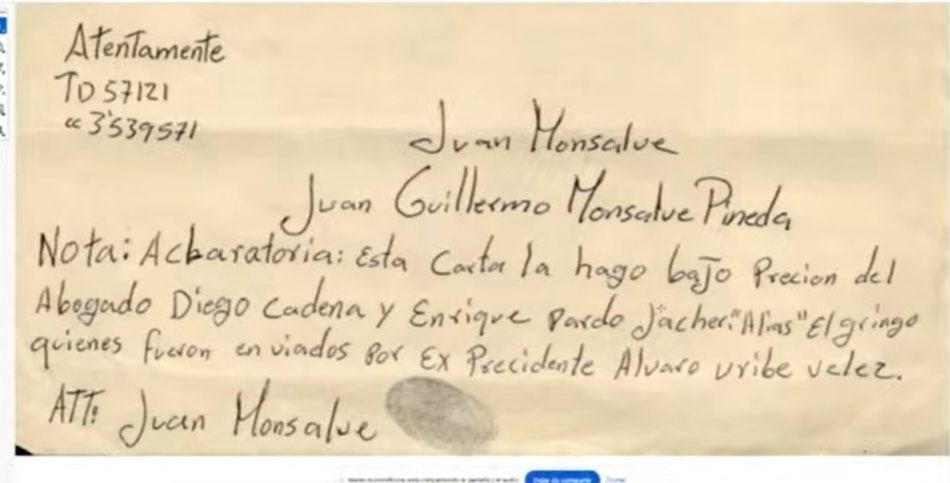 Atentamente
TD 57121
cc 3'539571
Juan Monsalve
Juan Guillermo Monsalve Pineda
Nota: Acbaratoria: Esta Carta la hago bajo Precion del
Abogado Diego Cadena y Enrique Pardo Jacher. "Alias" El gringo
quienes fueron enviados por Ex Precidente Alvaro uribe velez.
ATT: Juan Monsalve